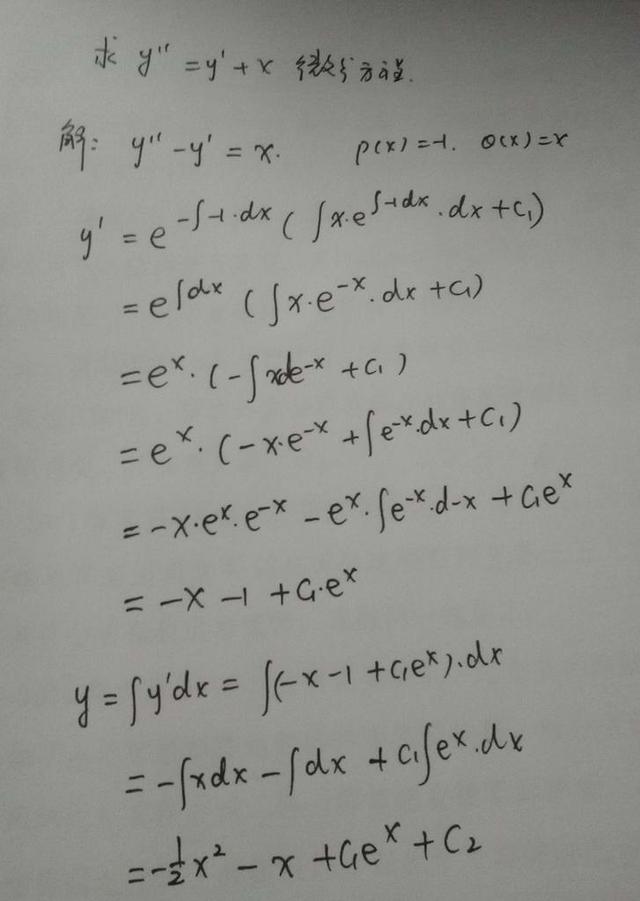 求 y'' = y' + x 微分方程.
解: y'' - y' = x. p(x) = -1. Q(x) = x
y' = e^{-∫-1·dx} (∫x·e^{∫-1dx}·dx + C₁)
= e^{∫dx} (∫x·e^{-x}·dx + C₁)
= e^x·(-∫xde^{-x} + C₁)
= e^x·(-x·e^{-x} + ∫e^{-x}·dx + C₁)
= -x·e^x·e^{-x} - e^x·∫e^{-x}·d-x + C₁e^x
= -x - 1 + C₁·e^x
y = ∫y'dx = ∫(-x - 1 + C₁e^x)·dx
= -∫xdx - ∫dx + C₁∫e^x·dx
= -\frac{1}{2}x² - x + C₁e^x + C₂